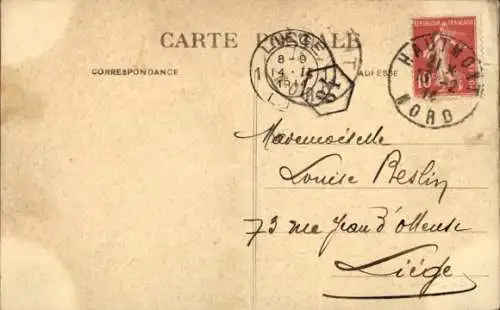 CARTE POSTALE
CORRESPONDANCE
ADRESSE
LIÈGE
8-9
14 · II
1
RÉPUBLIQUE FRANÇAISE
10
HAUTMONT
NORD
Mademoiselle
Louise Beslin
73 rue Jean d'Outremeuse
Liége